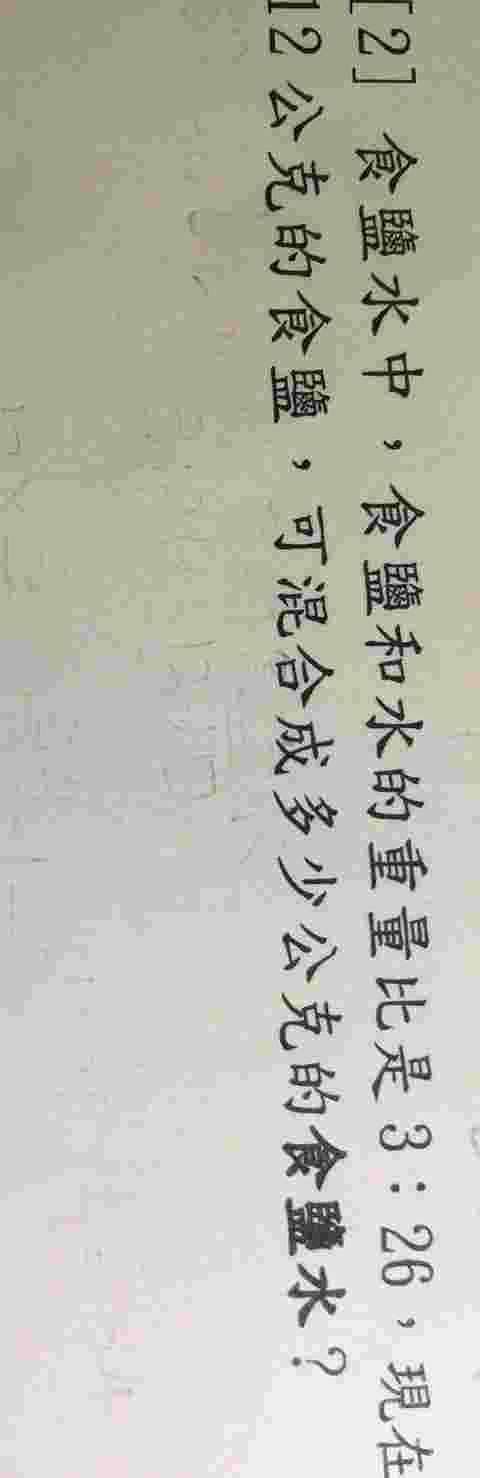 [2] 食鹽水中，食鹽和水的重量比是3：26，現在
12公克的食鹽，可混合成多少公克的食鹽水？